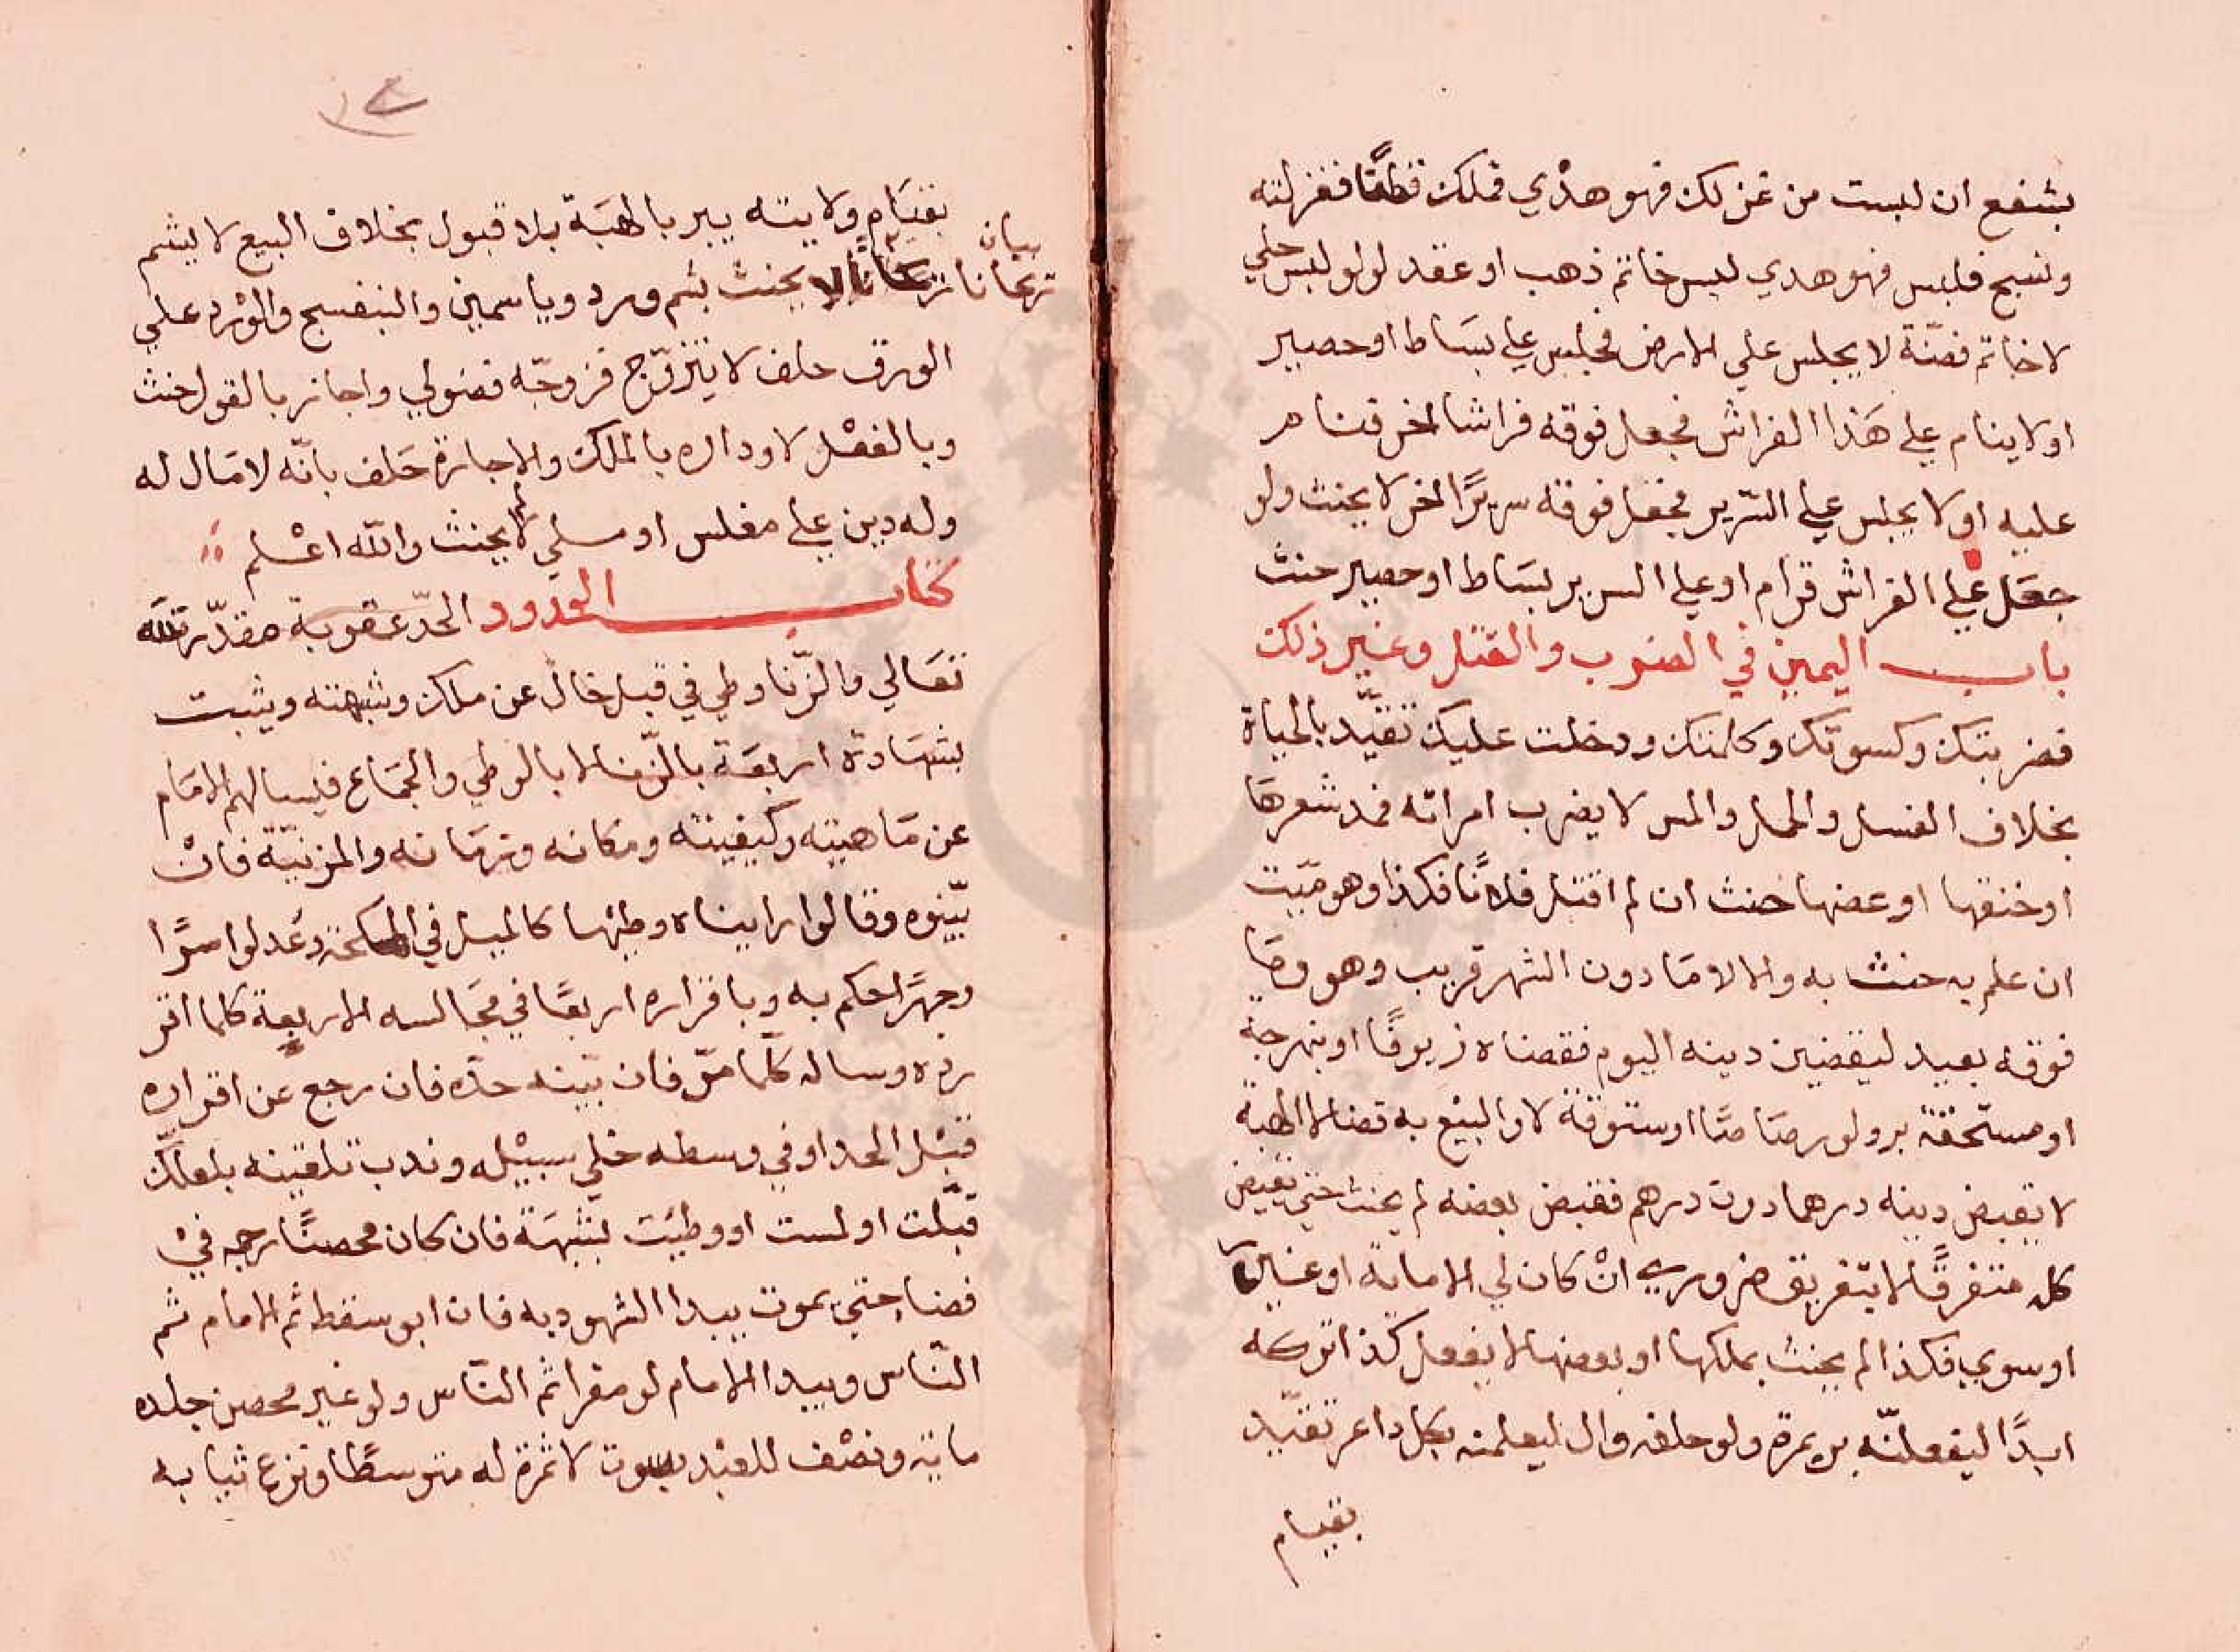 بشفع ان لبست من غزلك فهو هدي فملك قطنا فغزلته
ونسج فلبس فهو هدي لبس خاتم ذهب او عقد لولو لبس حلي
لا خاتم فضّة لا يجلس علي الارض فجلس علي بسَاط او حصير
او لا ينام علي هَذا الفراش فجعل فوقه فراشا اخر فنام
عليه او لا يجلس علي السّرير فجعل فوقه سريرًا اخر لا يحنث ولو
جعَل علي الفراش قرام او علي السرير بسَاط او حصير حنث
باب اليمين في الضرب والقتل وغير ذلك
فضربتك وكسوتك وكلمتك ودخلت عليك تقيّد بالحياة
بخلاف الغسل والحمل والمس لا يضرب امراته فمد شعرهَا
او خنقها او عضها حنث ان لم اقتل فلانًا فكذا وهو ميّت
ان علم به حنث به والا لا مَا دون الشهر قريب وهو ومَا
فوقه بعيد ليقضين دينه اليوم فقضاه زيوفًا او بنهرجة
او مستحقة بر ولو رصَاصًا او ستوقة لا والبيْع به قضا لا الهبة
لا يقبض دينه درهما دون درهم فقبض بعضه لم يحنث حتي يقبض
كله متفرقًا لا بتفريق ضروري انْ كان لي الا ماية او غير
او سوي فكذا لم يحنث بملكها او بعضها لا يفعل كذا تركه
ابدًا ليفعلنّه بر بمرة ولو حلفه وال ليعلمنه بكل داعر تقيّد
بقيام
بقيَام ولايته يبر بالهبَة بلا قبول بخلاف البيع لا يشم
بيان
ريحانا
ريحانًا لا يحنث بشم ورد وياسمين والبنفسج والوْرد علي
الورق حلف لا يتزوّج فزوجّه فضولي واجاز بالقول حنث
وبالفعْل لا وداره بالملك والاجارة حَلف بانّه لا مَال له
وله دين علي مفلس او ملي لا يحنث والله اعْلم
كتاب الحدود الحدّ عقوبة مقدّرة لله
تعَالي والزّنا وطي في قبل خال عن ملك وشبهته ويثبت
بشهَادة اربعَة بالزّنا لا بالوطي والجمَاع فيسالهم الامَام
عن مَاهيته وكيفيته ومكانه وزمَانه والمزنيّة فانْ
بيّنوه وقالوا رايناه وطئها كالميل في المكحلة وعُدلوا سرًا
وجهرًا حكم به وباقراره اربعًا في مجَالسه الاربعة كلما اقر
رده وساله كلّما مرّ فان بيّنه حدّه فان رجع عن اقراره
قبْل الحد او في وسطه خلي سبيْله وندب تلقينه بلعلّك
قبّلت او لمست او وطيَت بشبهَة فان كان محصنًا رجمه فيْ
فضا حتي يموت يبدا الشهود به فان ابو سقط ثم الامام ثم
النّاس ويبدا الامام لو مقرا ثم النّاس ولو غير محصن جلده
ماية ونصْف للعبْد بسوت لا ثمرة له متوسطًا ونزع ثيابه